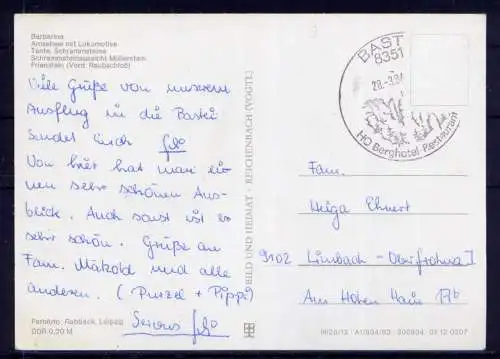 Barbarine
Amselsee mit Lokomotive
Tante, Schrammsteine
Schrammsteinaussicht Müllerstein
Frienstein (Vord. Raubschloß)
Viele Grüße von unserem
Ausflug in die Bastei
sendet Euch
Von hier hat man ei-
nen sehr schönen Aus-
blick. Auch sonst ist es
sehr schön. Grüße an
Fam. Mätzold und alle
anderen. (Purzel + Pippi)
Servus
Fotanto: Rabbäck, Leipzig
DDR 0,20 M
BILD UND HEIMAT · REICHENBACH (VOGTL)
BASTEI
8351
HO Berghotel-Restaurant
Fam.
Helga Ehnert
9102 Limbach-Oberfrohna I
Am Hohen Hain 17b
A1/904/83 300904 01 12 0207